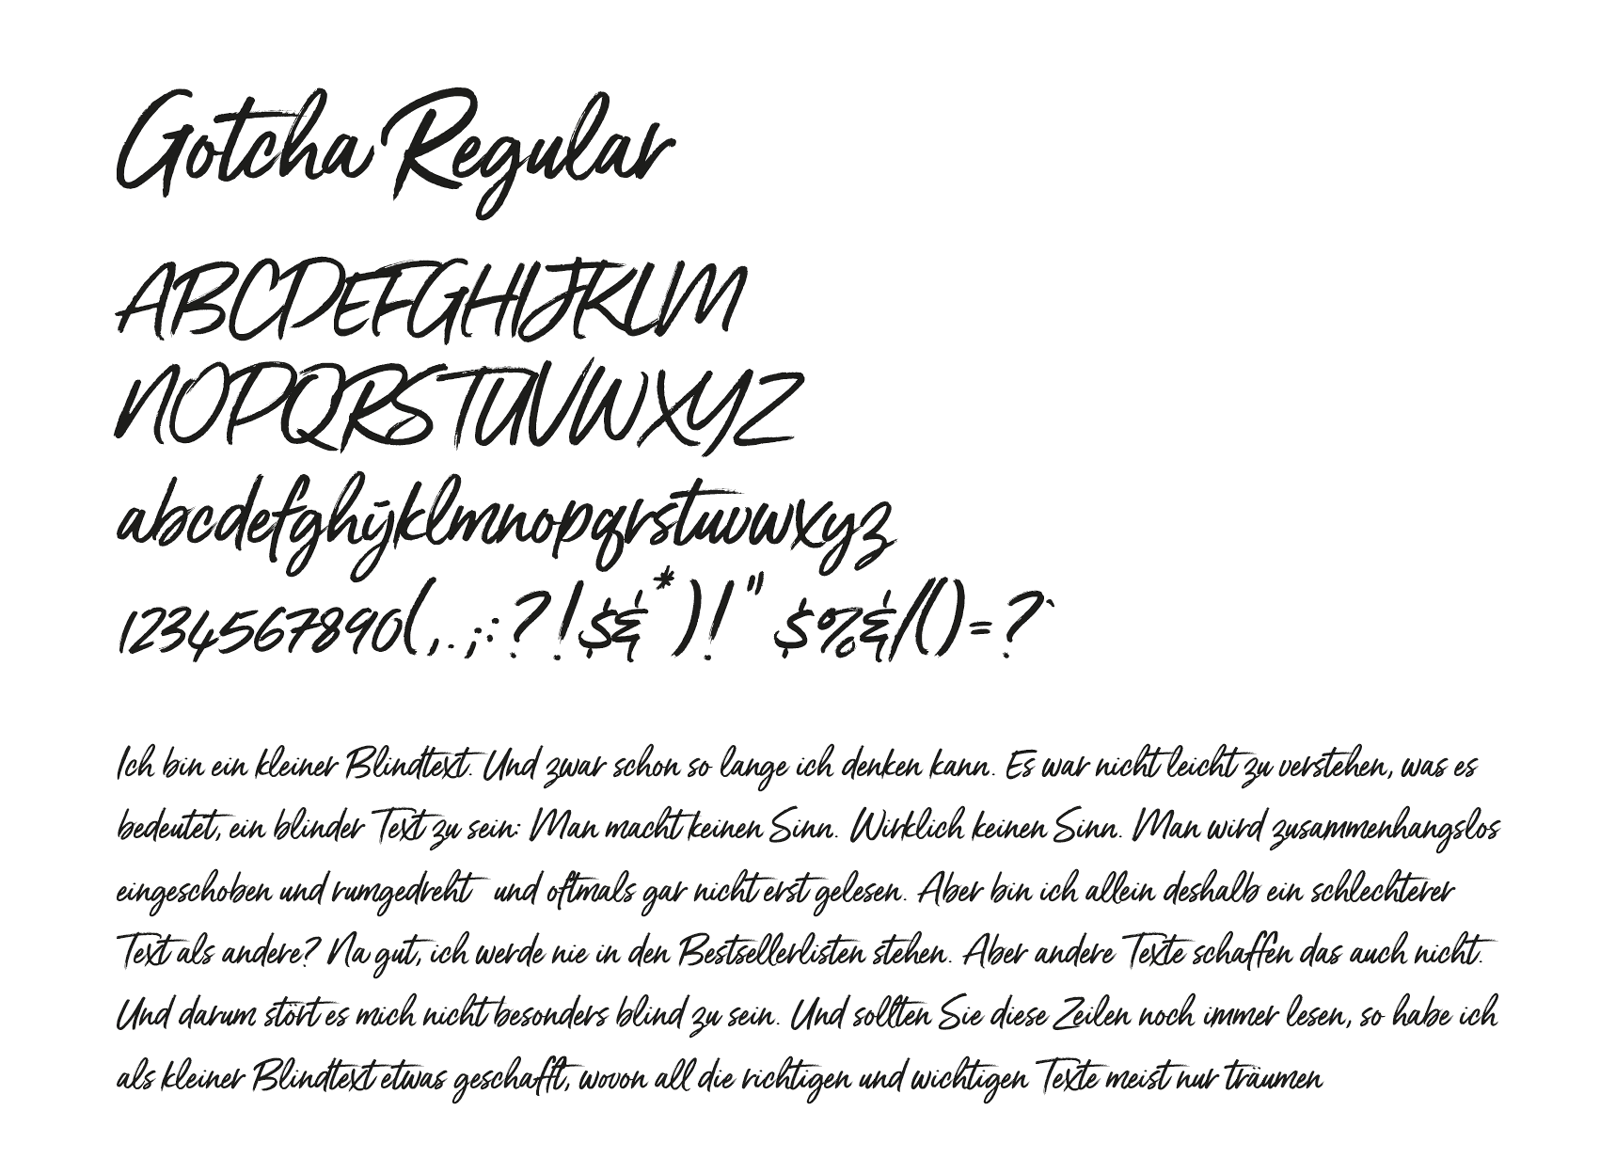 Gotcha Regular
ABCDEFGHIJKLM
NOPQRSTUVWXYZ
abcdefghijklmnopqrstuvwxyz
1234567890(,.;:?!$&*)!" $%&/()=?`
Ich bin ein kleiner Blindtext. Und zwar schon so lange ich denken kann. Es war nicht leicht zu verstehen, was es
bedeutet, ein blinder Text zu sein: Man macht keinen Sinn. Wirklich keinen Sinn. Man wird zusammenhangslos
eingeschoben und rumgedreht und oftmals gar nicht erst gelesen. Aber bin ich allein deshalb ein schlechterer
Text als andere? Na gut, ich werde nie in den Bestsellerlisten stehen. Aber andere Texte schaffen das auch nicht.
Und darum stört es mich nicht besonders blind zu sein. Und sollten Sie diese Zeilen noch immer lesen, so habe ich
als kleiner Blindtext etwas geschafft, wovon all die richtigen und wichtigen Texte meist nur träumen